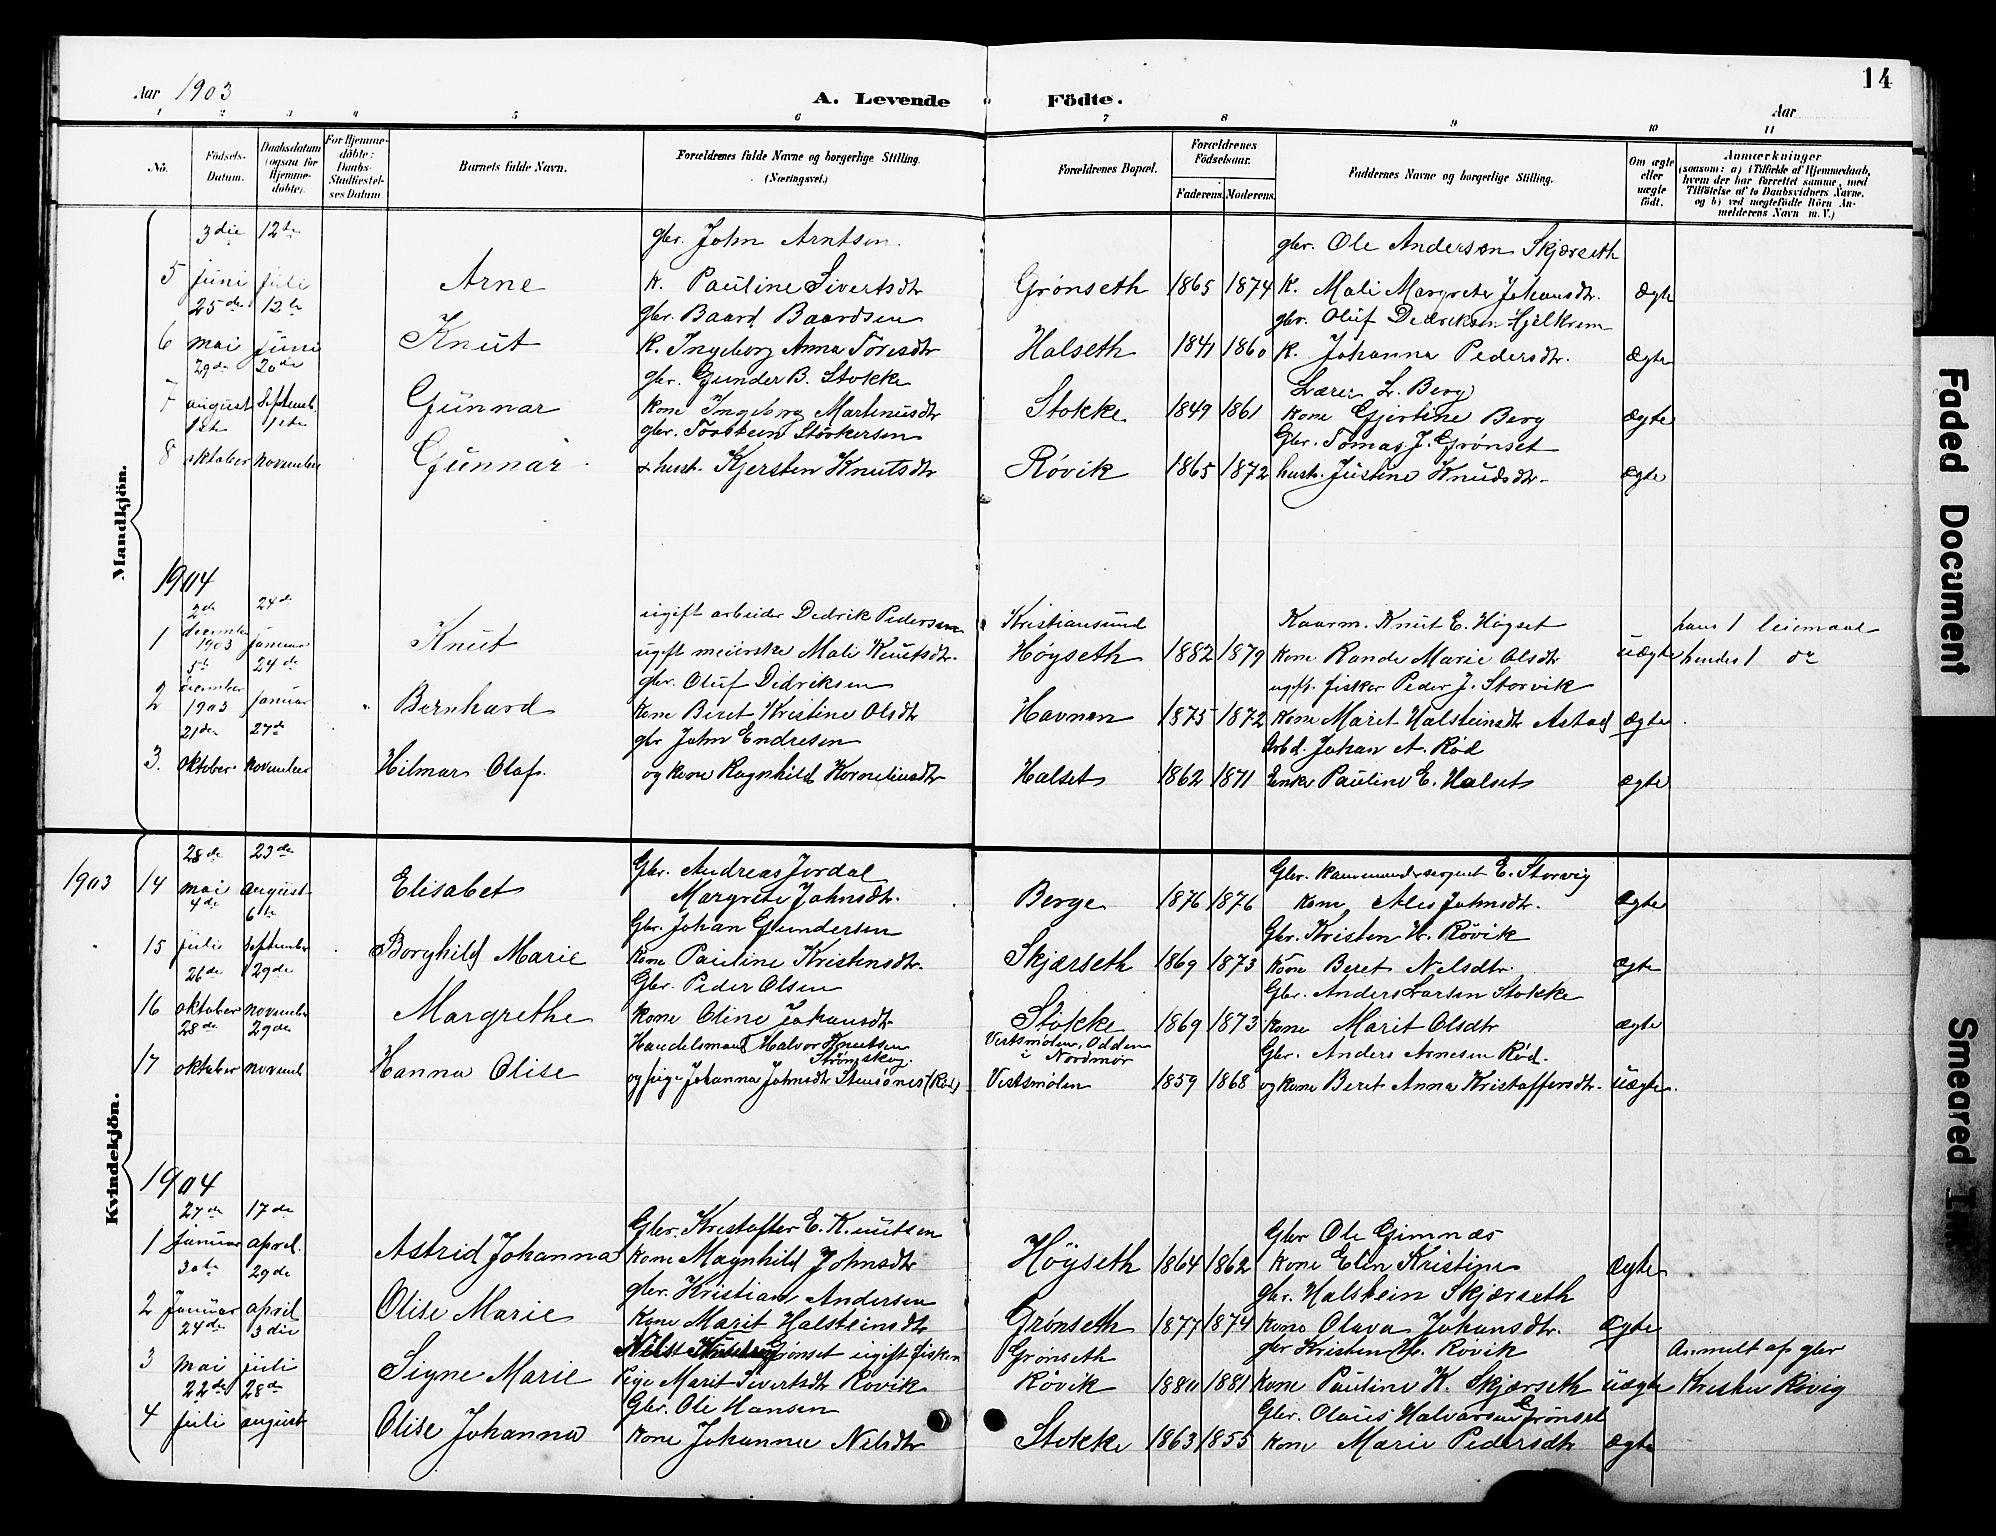 14
Aar 1903
A. Levende Födte.
Aar
1 2 3 4 5 6 7 8 9 10 11
No. Födsels-Datum. Daabsdatum (ogsaa for Hjemme-döbte). For Hjemme-döbte: Daabs-Stadfæstel-ses Datum. Barnets fulde Navn. Forældrenes fulde Navne og borgerlige Stilling. (Næringsvei.) Forældrenes Bopæl. Forældrenes Födselsaar. Faderens. Moderens. Faddernes Navne og borgerlige Stilling. Om ægte eller uægte födt. Anmærkninger (saasom: a) i Tilfælde af Hjemmedaab, hvem der har forrettet samme, med Tilföielse af to Daabsvidners Navne, og b) ved uægtefödte Börn An-melderens Navn m. V.)
Mandkjön.
3die 12te gbr. John Arntsen gbr. Ole Andersen Skjærseth
5 juni juli Arne k. Pauline Sivertsdtr Grønseth 1865 1874 k. Mali Margrete Johansdtr. ægte
25de 12te gbr. Baard Baardsen gbr. Oluf Dedriksen Hjelkrem
6 mai juni Knut k. Ingeborg Anna Toresdtr Halseth 1841 1860 k. Johanna Pedersdtr. ægte
29de 20de gbr. Gunder B. Stokke Lærer L. Berg
7 august septemb. Gunnar kone Ingeborg Martinusdtr Stokke 1849 1861 kone Gjertine Berg ægte
1ste 1ste gbr. Torstein Størkersen Gbr. Tomas J. Grønset
8 oktober november Gunnar & hust. Kjersten Knutsdtr Røvik 1865 1872 hust. Justine Knudsdtr. ægte
1904
2de 24de ugift arbeider Dedrik Pedersen Kristiansund Kaarm. Knut E. Høgset hans 1 leiemaal
1 december 1903 januar Knut ugift meierske Mali Knutsdtr. Høyseth 1882 1879 kone Rande Marie Olsdtr uægte hendes 1 do
5te 24de gbr. Oluf Didriksen ugift fisker Peder J. Storvik
2 december 1903 januar Bernhard kone Beret Kristine Olsdtr Havnen 1875 1872 kone Marit Halsteinsdtr Astad ægte
21de 27de gbr John Endresen Arbd. Johan A. Rød
3. oktober november Hilmar Olaf. og kone Ragnhild Korneliusdtr Halset 1862 1871 Enke Pauline E. Halset ægte
Kvindekjön.
28de 23de Gbr. Andreas Jordal Gbr. kommandersergent E. Storvig
1903 14 mai august Elisabet Margrete Johnsdtr. Berge 1876 1876 kone Ales Johnsdtr. ægte
4de 6te Gbr. Johan Gundersen Gbr. Kristen H. Røvik
15 juli september Borghild Marie kone Pauline Kristensdtr. Skjærseth 1869 1873 kone Beret Nelsdtr. ægte
26de 29de Gbr. Peder Olsen Gbr. Anders Larsen Stokke
16 oktober november Margrethe kone Oline Johansdtr Stokke 1869 1873 kone Marit Olsdtr ægte
28de 29de Handelsmand Halvor Knutsen Strømskog. Vestsmølen, Odden i Nordmør Gbr. Anders Arnesen Rød.
17 oktober novemb Hanna Olise og pige Johanna Johnsdtr Stensønes (Rød) Vestsmølen 1859 1868 og kone Beret Anna Kristoffersdtr. uægte
1904
27de 17de Gbr. Kristoffer E. Knutsen Gbr Ole Gimnæs
1 januar april. Astrid Johanna kone Magnhild Johnsdtr Høyseth 1864 1862 kone Elen Kristine ægte
30te 29de gbr. Kristian Andersen gbr. Halstein Skjærseth
2 Januar april Olise Marie kone Marit Halsteinsdtr Grønseth 1877 1874 kone Olava Johansdtr. ægte
24de 3die Nils Grønset ugift fisker Grønseth gbr Kristen H. Røvik Anmelt af gbr
3 mai juli Signe Marie Pige Marit Sivertsdtr Røvik Røvik 1880 1881 kone Pauline K. Skjærseth uægte Kristen Røvig
22de 28de Gbr. Ole Hansen Gbr. Olaus Halvorsen Grønset
4 juli august Olise Johanna kone Johanna Nelsdtr Stokke 1863 1855 kone Marie Pedersdtr ægte
Faded Document
Smeared Ink